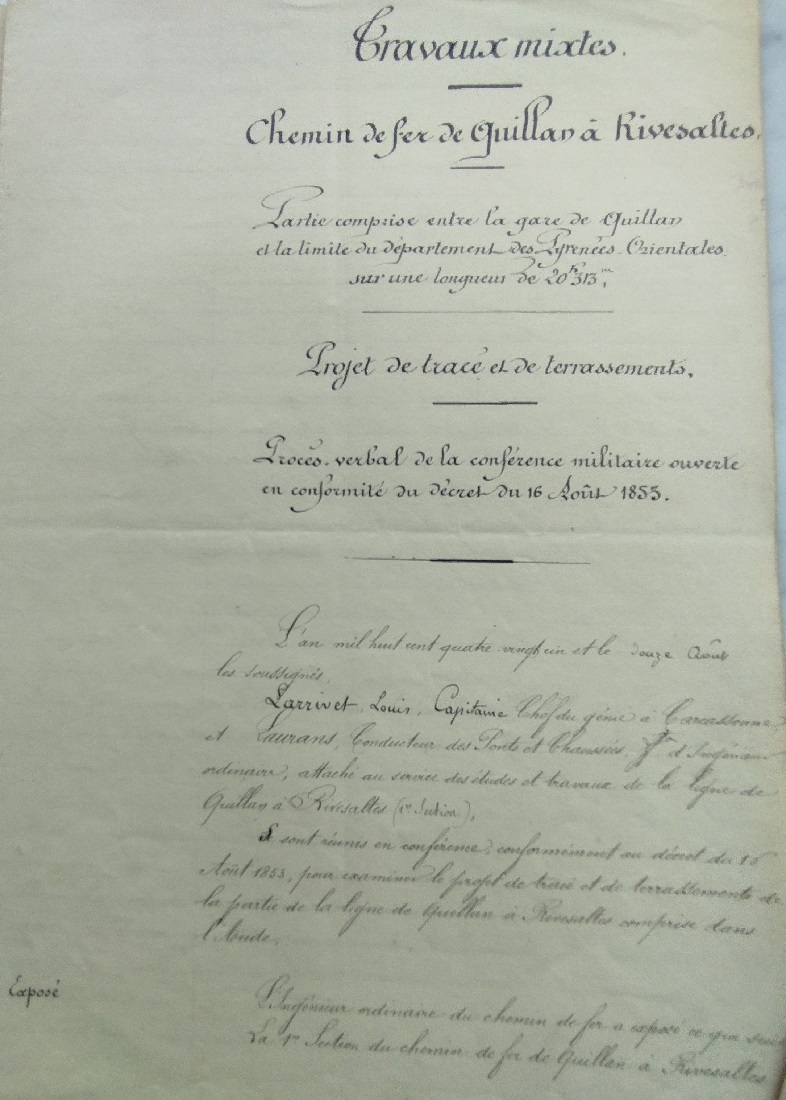 Travaux mixtes.
Chemin de fer de Quillan à Rivesaltes.
Partie comprise entre la gare de Quillan
et la limite du département des Pyrénées-Orientales.
sur une longueur de 20k313m.
Projet de tracé et de terrassements.
Procès-verbal de la conférence militaire ouverte
en conformité du décret du 16 Août 1853.
L'an mil huit cent quatre-vingt un et le douze Août
les soussignés,
Larrivet, Louis, Capitaine Chef du génie à Carcassonne,
et Laurans, Conducteur des Ponts et Chaussées, d'Ingénieur
ordinaire, attaché au service des études et travaux de la ligne de
Quillan à Rivesaltes (1re Section),
Se sont réunis en conférence, conformément au décret du 16
Août 1853, pour examiner le projet de tracé et de terrassements de
la partie de la ligne de Quillan à Rivesaltes comprise dans
l'Aude.
Exposé
L'Ingénieur ordinaire du chemin de fer a exposé ce qui suit
La 1re Section du chemin de fer de Quillan à Rivesaltes